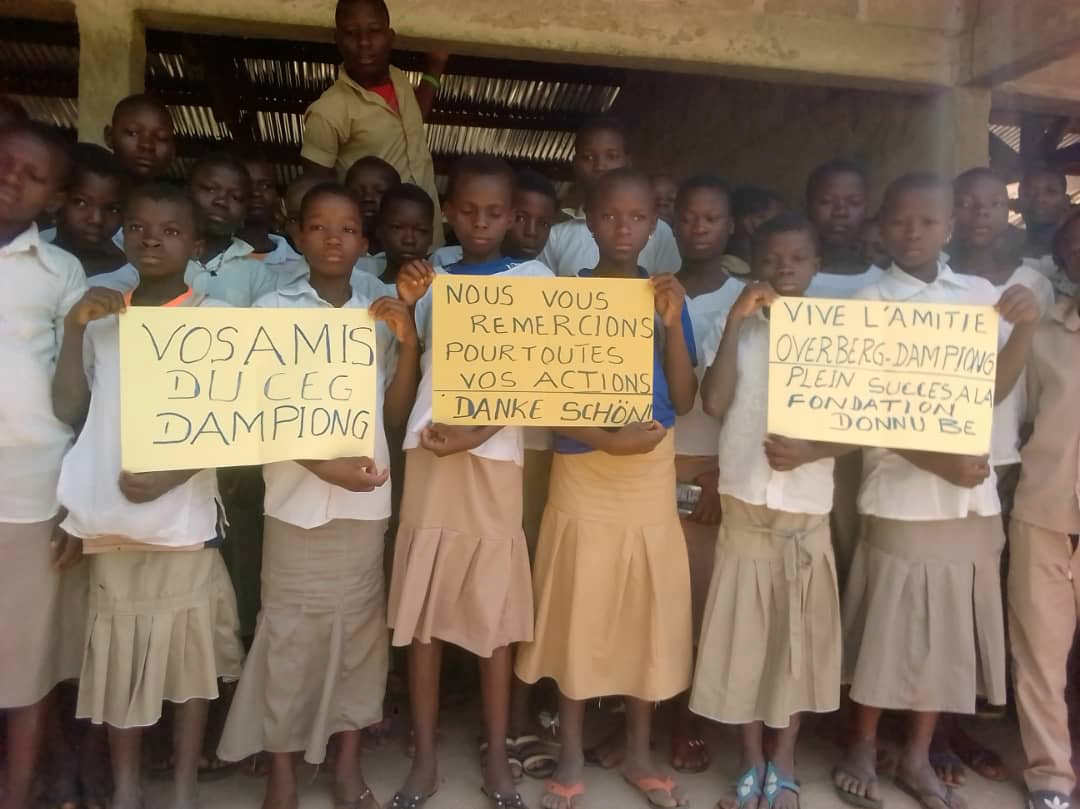 VOS AMIS
DU CEG
DAMPIONG
NOUS VOUS
REMERCIONS
POUR TOUTES
VOS ACTIONS
DANKE SCHÖN!
VIVE L'AMITIE
OVERBERG-DAMPIONG
PLEIN SUCCES A LA
FONDATION
DONNUBE